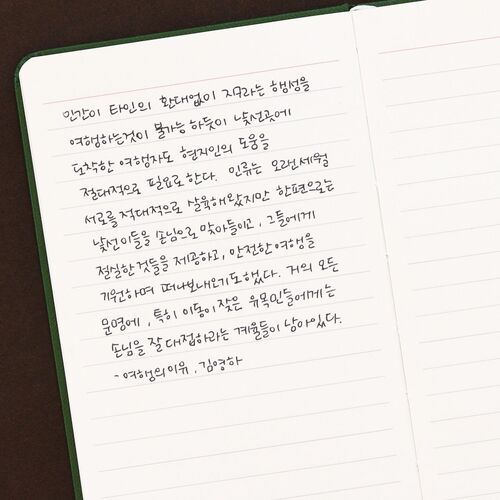 인간이 타인의 환대없이 지구라는 행성을
여행하는것이 불가능 하듯이 낯선곳에
도착한 여행자도 현지인의 도움을
절대적으로 필요로 한다. 인류는 오랜세월
서로를 적대적으로 살육해왔지만 한편으로는
낯선이들을 손님으로 맞아들이고, 그들에게
절실한것들을 제공하고, 안전한여행을
기원하며 떠나보내오기도했다. 거의 모든
문명에, 특히 이동이 잦은 유목민들에게는
손님을 잘 대접하라는 계율들이 남아있다.
- 여행의이유, 김영하